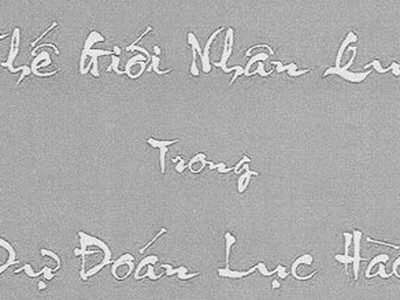 Thế Giới Nhân Qu
Trong
Dự Đoán Lục Hào